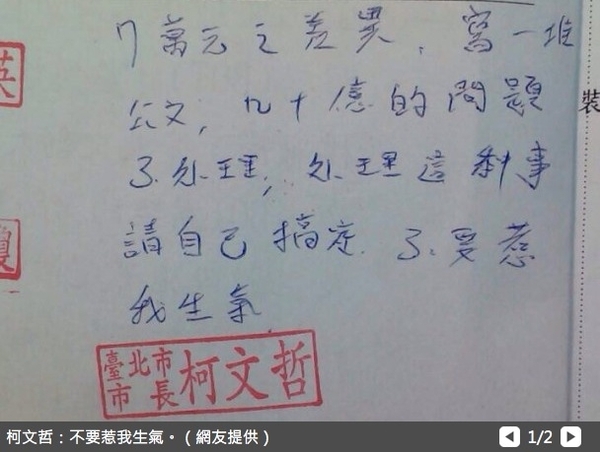 7萬元之差異，寫一堆
公文，几十億的問題
不处理，处理這种事
請自己搞定．不要惹
我生氣．
臺北市市長柯文哲
裝
英
瓊
柯文哲：不要惹我生氣。（網友提供）
1/2